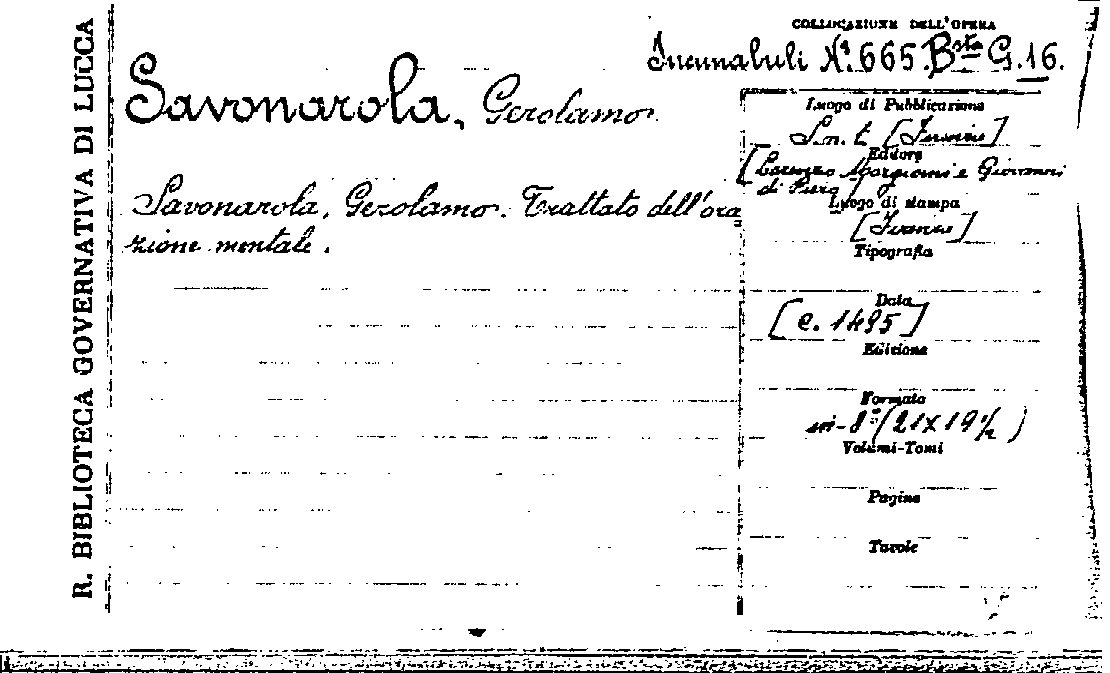 R. BIBLIOTECA GOVERNATIVA DI LUCCA
COLLOCAZIONE DELL'OPERA
Incunabuli N.º 665. Bsta G.16.
Savonarola, Gerolamo
Savonarola, Gerolamo. Trattato dell'ora
zione mentale.
Luogo di Pubblicazione
S.n.t. [Firenze]
Editore
[Lorenzo Morgiani e Giovanni
di Piero]
Luogo di stampa
[Firenze]
Tipografia
Data
[c. 1495]
Edizione
Formato
in-8º (21X19½)
Volumi-Tomi
Pagine
Tavole